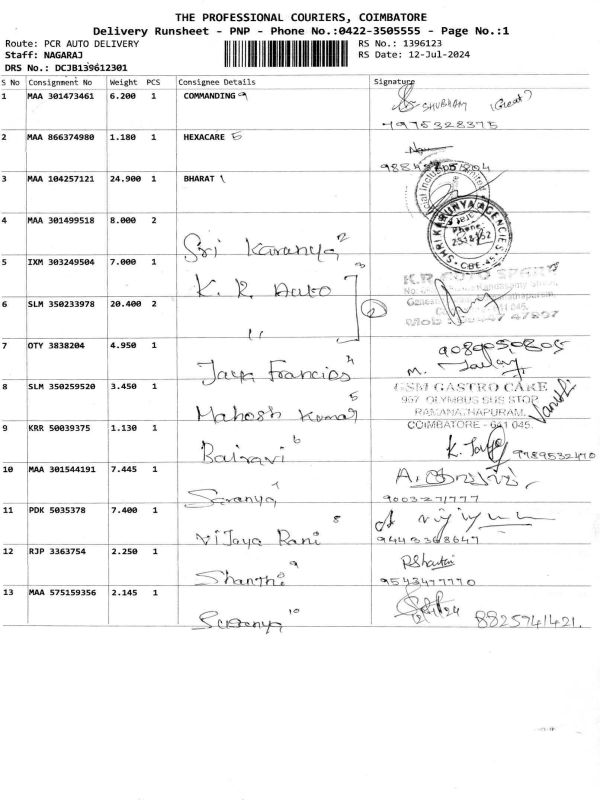 THE PROFESSIONAL COURIERS, COIMBATORE
Delivery Runsheet - PNP - Phone No.:0422-3505555 - Page No.:1
Route: PCR AUTO DELIVERY RS No.: 1396123
Staff: NAGARAJ RS Date: 12-Jul-2024
DRS No.: DCJB139612301
S No Consignment No Weight PCS Consignee Details Signature
1 MAA 301473461 6.200 1 COMMANDING 9 SHUBHAM (Great)
7975328375
2 MAA 866374980 1.180 1 HEXACARE 5
3 MAA 104257121 24.900 1 BHARAT 1
4 MAA 301499518 8.000 2 Sri Karanya 2 SHRI KARUNYA AGENCIES
Phone:
CBE-45
5 IXM 303249504 7.000 1 K. R Auto 3 K.R. AUTO SPARES
6 SLM 350233978 20.400 2 " 2
641 045.
7 OTY 3838204 4.950 1 Jaya Francies 4 9080050805
M.
8 SLM 350259520 3.450 1 Mahesh Kumar 5 GSM GASTRO CARE
957 OLYMBUS BUS STOP
RAMANATHAPURAM,
COIMBATORE - 641 045.
9 KRR 50039375 1.130 1 Bairavi 6 K. Jaya 9789532470
10 MAA 301544191 7.445 1 Saranya 7 A.
9003271777
11 PDK 5035378 7.400 1 Vijaya Rani 8
9443368647
12 RJP 3363754 2.250 1 Shanthi 9 RShanthi
9543477770
13 MAA 575159356 2.145 1 Saranya 10 12/7/24 8825741421.